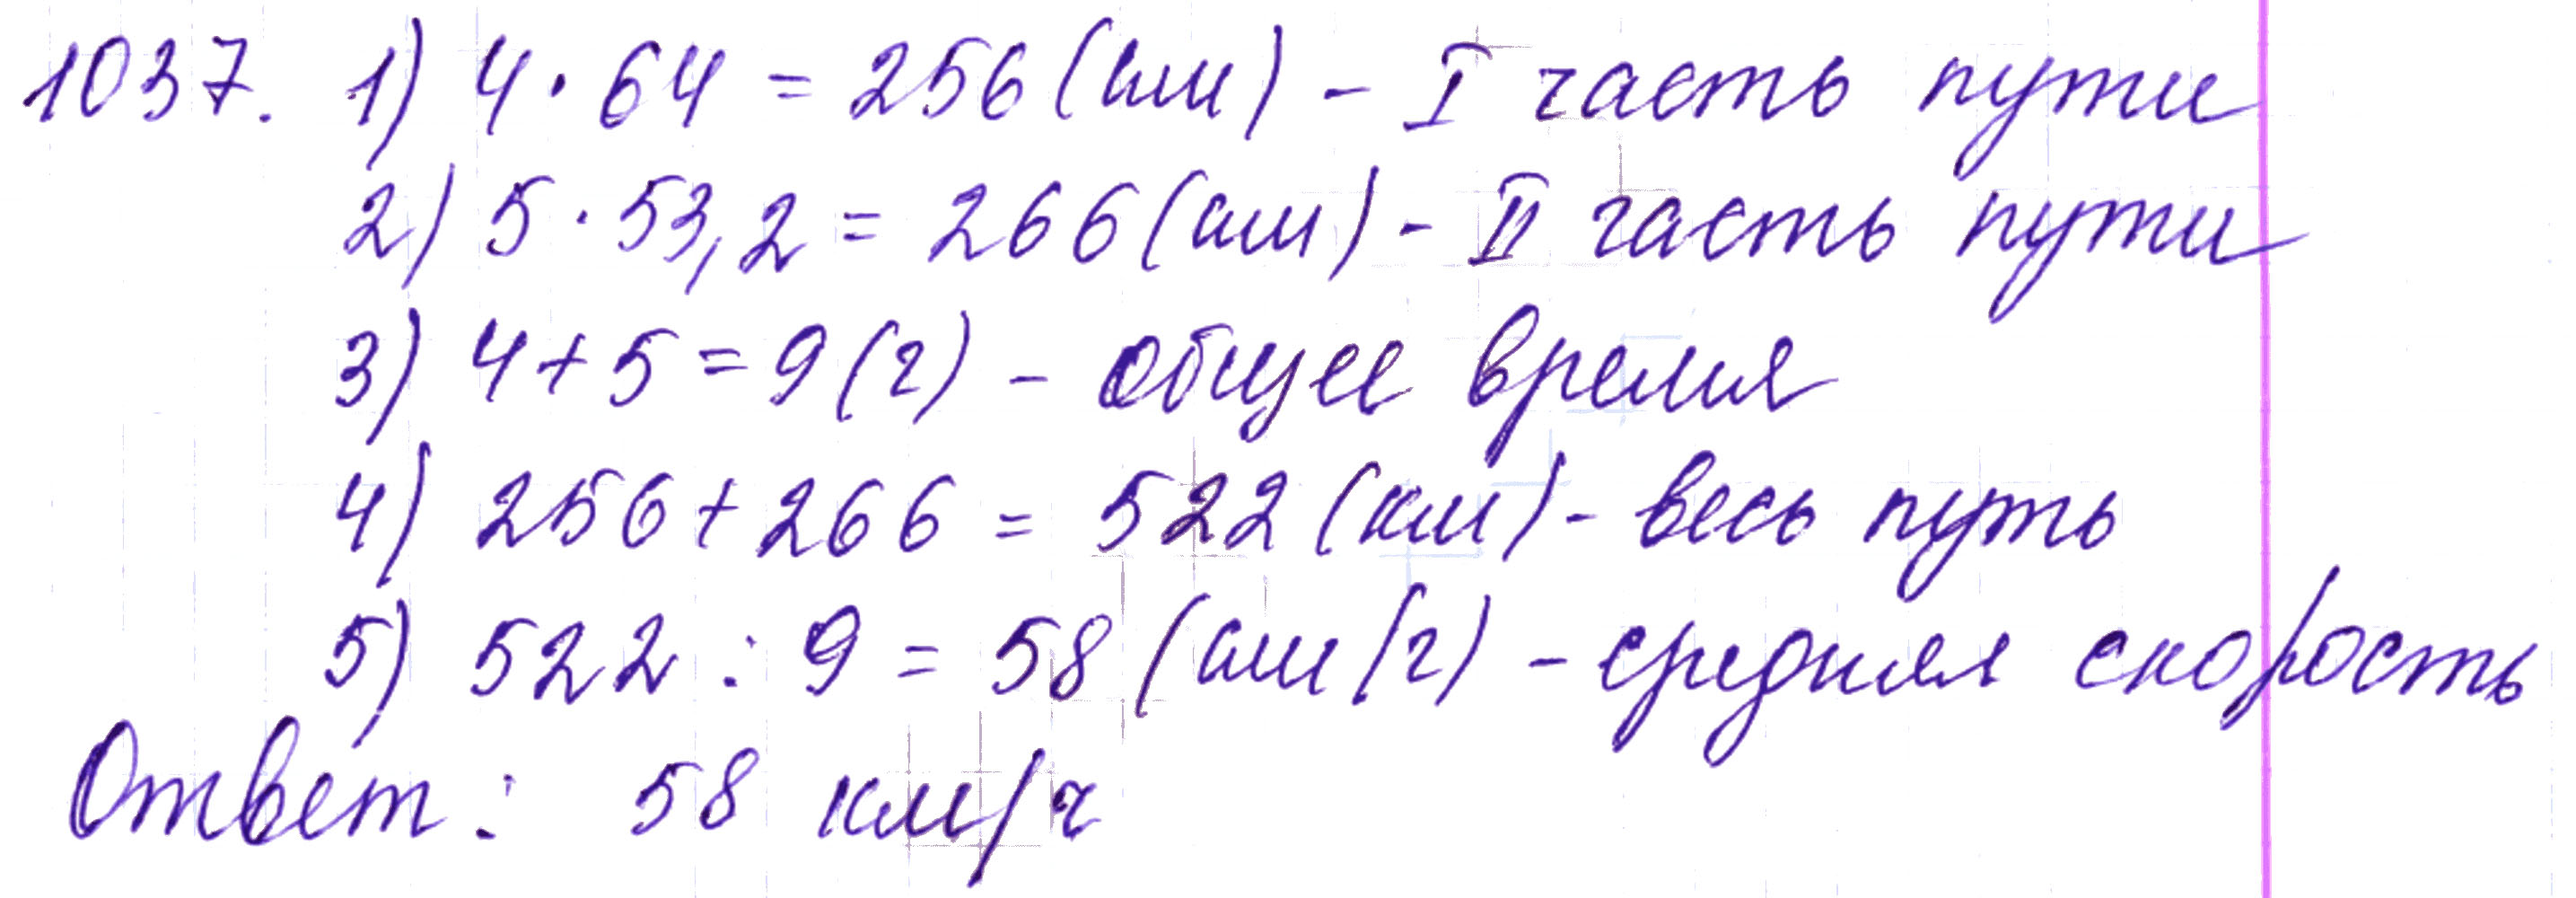 1037. 1) 4 · 64 = 256 (км) - I часть пути
2) 5 · 53,2 = 266 (км) - II часть пути
3) 4 + 5 = 9 (ч) - общее время
4) 256 + 266 = 522 (км) - весь путь
5) 522 : 9 = 58 (км/ч) - средняя скорость
Ответ: 58 км/ч